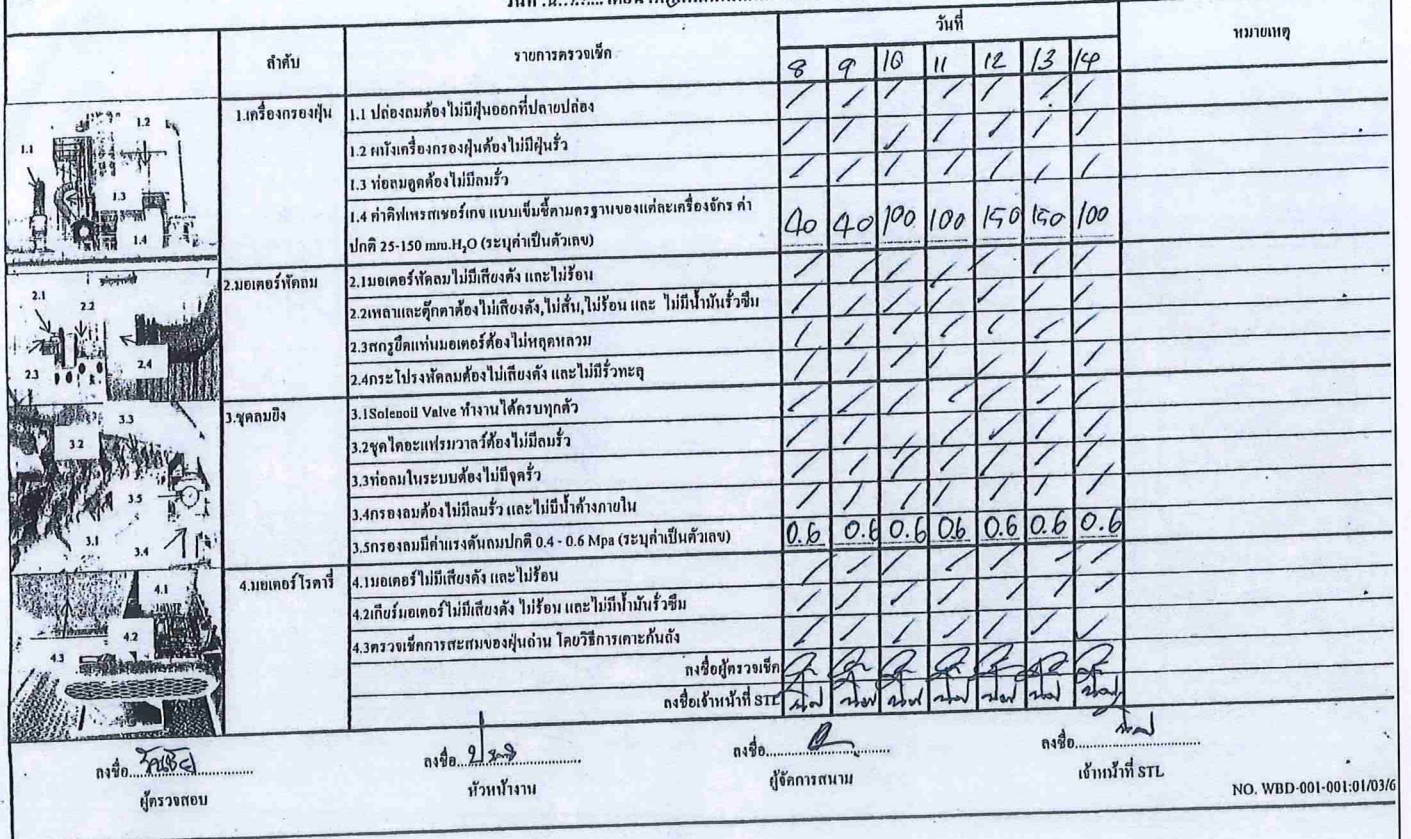 วันที่
ลำดับ รายการตรวจเช็ค วันที่ หมายเหตุ
8 9 10 11 12 13 14
1.เครื่องกรองฝุ่น 1.1 ปล่องลมต้องไม่มีฝุ่นออกที่ปลายปล่อง / / / / / / /
1.2 ผนังเครื่องกรองฝุ่นต้องไม่มีฝุ่นรั่ว / / / / / / /
1.3 ท่อลมดูดต้องไม่มีลมรั่ว / / / / / / /
1.4 ค่าดิฟเพรสเชอร์เกจ แบบเข็มชี้ตามครฐานของแต่ละเครื่องจักร ค่า
ปกติ 25-150 mm.H₂O (ระบุค่าเป็นตัวเลข) 40 40 100 100 150 150 100
1.1 1.2 1.3 1.4
2.มอเตอร์พัดลม 2.1มอเตอร์พัดลมไม่มีเสียงดัง และไม่ร้อน / / / / / / /
2.2เพลาและตุ๊กตาต้องไม่เสียงดัง,ไม่สั่น,ไม่ร้อน และ ไม่มีน้ำมันรั่วซึม / / / / / / /
2.3สกรูยึดแท่นมอเตอร์ต้องไม่หลุดหลวม / / / / / / /
2.4กระโปรงพัดลมต้องไม่เสียงดัง และไม่มีรั่วทะลุ / / / / / / /
2.1 2.2 2.3 2.4
3.ชุดลมยิง 3.1Solenoil Valve ทำงานได้ครบทุกตัว / / / / / / /
3.2ชุดไดอะแฟรมวาลว์ต้องไม่มีลมรั่ว / / / / / / /
3.3ท่อลมในระบบต้องไม่มีจุดรั่ว / / / / / / /
3.4กรองลมต้องไม่มีลมรั่ว และไม่มีน้ำค้างภายใน / / / / / / /
3.5กรองลมมีค่าแรงดันลมปกติ 0.4 - 0.6 Mpa (ระบุค่าเป็นตัวเลข) 0.6 0.6 0.6 0.6 0.6 0.6 0.6
3.3 3.2 3.5 3.1 3.4
4.มอเตอร์โรตารี่ 4.1มอเตอร์ไม่มีเสียงดัง และไม่ร้อน / / / / / / /
4.2เกียร์มอเตอร์ไม่มีเสียงดัง ไม่ร้อน และไม่มีน้ำมันรั่วซึม / / / / / / /
4.3ตรวจเช็คการสะสมของฝุ่นถ่าน โดยวิธีการเคาะก้นถัง / / / / / / /
4.1 4.2 4.3
ลงชื่อผู้ตรวจเช็ค
ลงชื่อเจ้าหน้าที่ STL
ลงชื่อ.............. ลงชื่อ.............. ลงชื่อ.............. ลงชื่อ..............
ผู้ตรวจสอบ หัวหน้างาน ผู้จัดการสนาม เจ้าหน้าที่ STL
NO. WBD-001-001:01/03/6